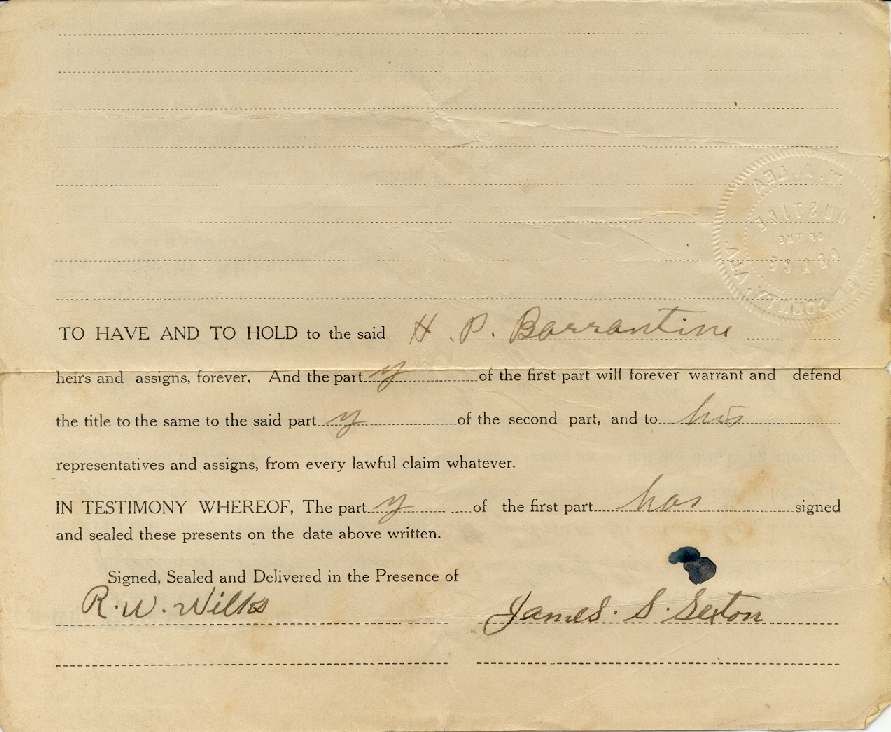 TO HAVE AND TO HOLD to the said H. P. Barrantine
heirs and assigns, forever. And the party of the first part will forever warrant and defend
the title to the same to the said party of the second part, and to his
representatives and assigns, from every lawful claim whatever.
IN TESTIMONY WHEREOF, The party of the first part has signed
and sealed these presents on the date above written.
Signed, Sealed and Delivered in the Presence of
R. W. Wilks
James. S. Sexton